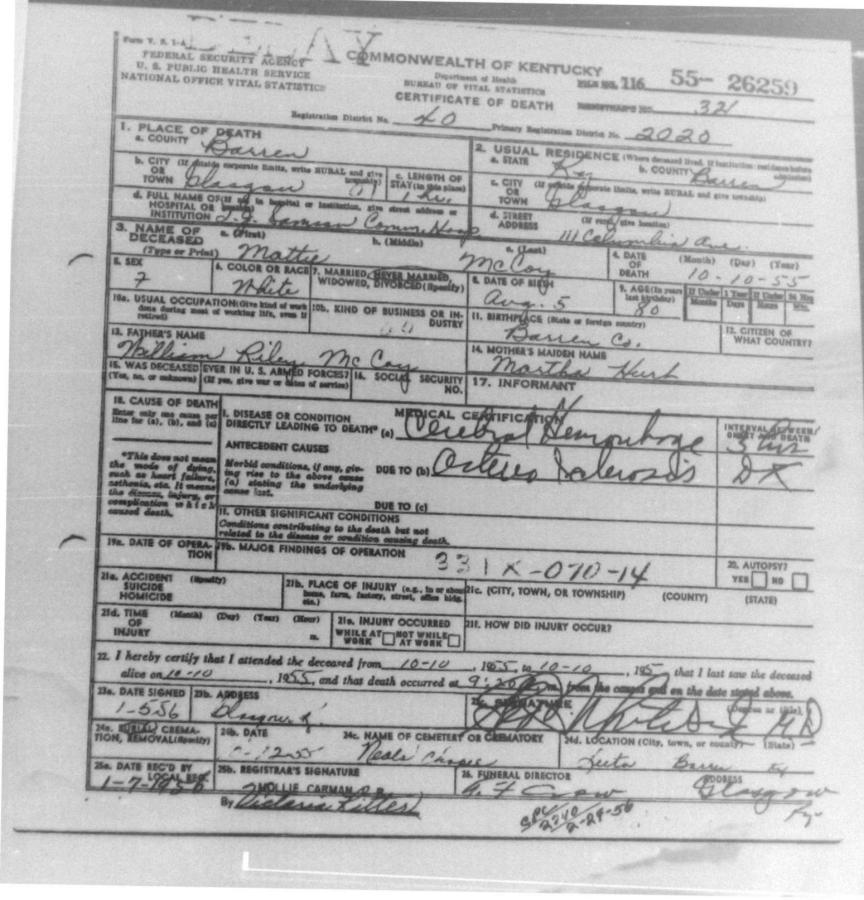 DELAY
Form V. S. 1-A
FEDERAL SECURITY AGENCY
U. S. PUBLIC HEALTH SERVICE
NATIONAL OFFICE VITAL STATISTICS
COMMONWEALTH OF KENTUCKY
Department of Health
BUREAU OF VITAL STATISTICS
CERTIFICATE OF DEATH
FILE NO. 116 55-26259
REGISTRAR'S NO. 321
Registration District No. 40 Primary Registration District No. 2020
1. PLACE OF DEATH
a. COUNTY Barren
b. CITY (If outside corporate limits, write RURAL and give township)
OR TOWN Glasgow
c. LENGTH OF STAY (in this place) 1 hr.
d. FULL NAME OF (If not in hospital or institution, give street address or location)
HOSPITAL OR INSTITUTION T. J. Samson Comm. Hosp
2. USUAL RESIDENCE (Where deceased lived. If institution: residence before admission)
a. STATE Ky b. COUNTY Barren
c. CITY (If outside corporate limits, write RURAL and give township)
OR TOWN Glasgow
d. STREET ADDRESS (If rural, give location) 111 Columbia Ave.
3. NAME OF DECEASED (Type or Print)
a. (First) Mattie b. (Middle) c. (Last) McCoy
4. DATE OF DEATH (Month) (Day) (Year) 10-10-55
5. SEX F
6. COLOR OR RACE White
7. MARRIED, NEVER MARRIED, WIDOWED, DIVORCED (Specify)
8. DATE OF BIRTH Aug. 5
9. AGE (In years last birthday) 80
If Under 1 Year Months Days
If Under 24 Hrs Hours Min.
10a. USUAL OCCUPATION (Give kind of work done during most of working life, even if retired)
10b. KIND OF BUSINESS OR INDUSTRY
11. BIRTHPLACE (State or foreign country) Barren Co.
12. CITIZEN OF WHAT COUNTRY?
13. FATHER'S NAME William Riley McCoy
14. MOTHER'S MAIDEN NAME Martha Hurt
15. WAS DECEASED EVER IN U. S. ARMED FORCES?
(Yes, no, or unknown) (If yes, give war or dates of service)
16. SOCIAL SECURITY NO.
17. INFORMANT
18. CAUSE OF DEATH
Enter only one cause per line for (a), (b), and (c)
*This does not mean the mode of dying, such as heart failure, asthenia, etc. It means the disease, injury, or complication which caused death.
MEDICAL CERTIFICATION
I. DISEASE OR CONDITION DIRECTLY LEADING TO DEATH* (a) Cerebral Hemorrhage
INTERVAL BETWEEN ONSET AND DEATH
ANTECEDENT CAUSES
Morbid conditions, if any, giving rise to the above cause (a) stating the underlying cause last.
DUE TO (b)
DUE TO (c)
II. OTHER SIGNIFICANT CONDITIONS
Conditions contributing to the death but not related to the disease or condition causing death.
19a. DATE OF OPERATION
19b. MAJOR FINDINGS OF OPERATION
331X-070-14
20. AUTOPSY?
YES NO
21a. ACCIDENT SUICIDE HOMICIDE (Specify)
21b. PLACE OF INJURY (e.g., in or about home, farm, factory, street, office bldg. etc.)
21c. (CITY, TOWN, OR TOWNSHIP) (COUNTY) (STATE)
21d. TIME OF INJURY (Month) (Day) (Year) (Hour) m.
21e. INJURY OCCURRED
WHILE AT WORK NOT WHILE AT WORK
21f. HOW DID INJURY OCCUR?
22. I hereby certify that I attended the deceased from 10-10, 1955, to 10-10, 195, that I last saw the deceased
alive on 10-10, 1955, and that death occurred at 9:20 m. from the causes and on the date stated above.
23a. DATE SIGNED 1-5-56
23b. ADDRESS Glasgow
23c. SIGNATURE (Degree or title) M D
24a. BURIAL, CREMATION, REMOVAL (Specify)
24b. DATE 10-12-55
24c. NAME OF CEMETERY OR CREMATORY
24d. LOCATION (City, town, or county) (State)
Barren Ky
25a. DATE REC'D BY LOCAL REG. 1-7-1956
25b. REGISTRAR'S SIGNATURE
MOLLIE CARMAN
By Victoria
26. FUNERAL DIRECTOR Crow
ADDRESS Glasgow
Ky.
2-29-56